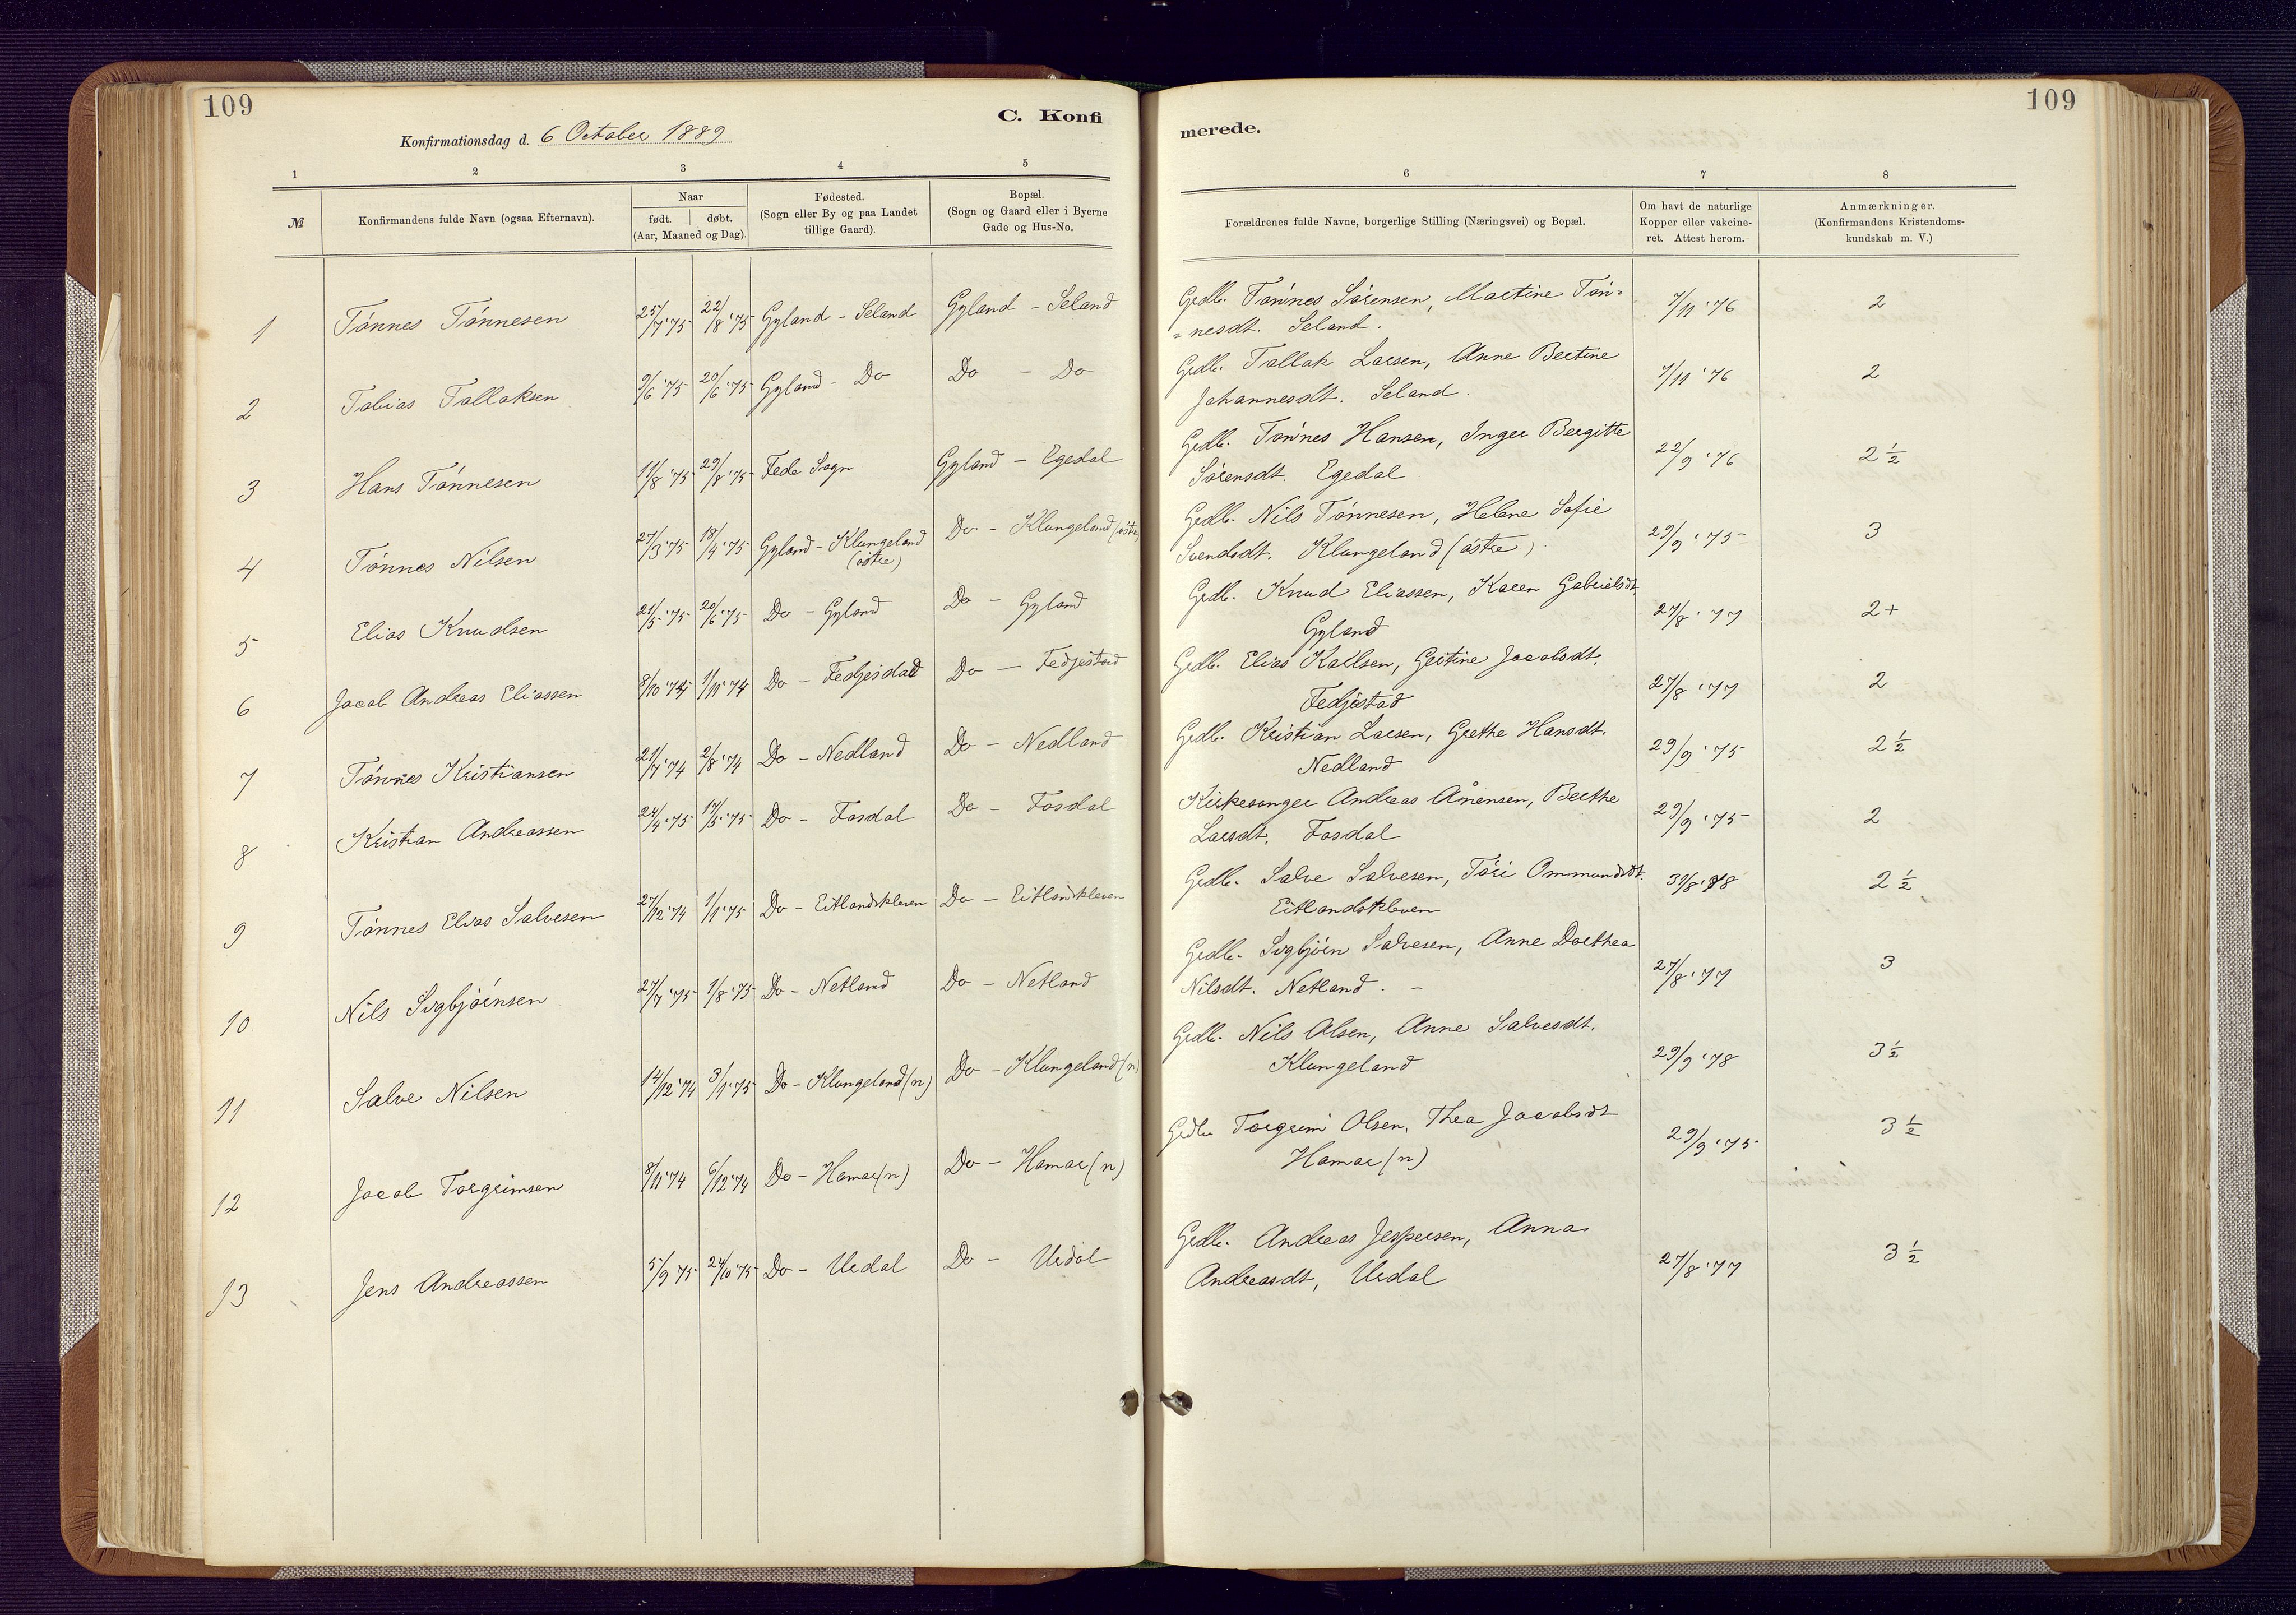 109
C. Konfi
Konfirmationsdag d. 6 October 1889
1 2 3 4 5
№
Konfirmandens fulde Navn (ogsaa Efternavn).
Naar
født. døbt.
(Aar, Maaned og Dag).
Fødested.
(Sogn eller By og paa Landet
tillige Gaard).
Bopæl.
(Sogn og Gaard eller i Byerne
Gade og Hus-No.
1 Tönnes Tönnesen 25/7 '75 22/8 '75 Gyland - Seland Gyland - Seland
2 Tobias Tallaksen 9/6 '75 20/6 '75 Gyland - Do Do - Do
3 Hans Tönnesen 11/8 '75 29/8 '75 Fede Sogn Gyland - Egedal
4 Tönnes Nilsen 27/3 '75 18/4 '75 Gyland - Klungeland
(östre)
Do - Klungeland (östre)
5 Elias Knudsen 21/5 '75 20/6 '75 Do - Gyland Do - Gyland
6 Jacob Andreas Eliassen 8/10 '74 1/11 '74 Do - Fedjesdad Do - Fedjestad
7 Tönnes Kristiansen 21/7 '74 2/8 '74 Do - Nedland Do - Nedland
8 Kristian Andreassen 24/4 '75 17/5 '75 Do - Fosdal Do - Fosdal
9 Tönnes Elias Salvesen 27/12 '74 1/1 '75 Do - Eitlandskleven Do - Eitlandskleven
10 Nils Sigbjörnsen 27/7 '75 1/8 '75 Do - Netland Do - Netland
11 Salve Nilsen 14/12 '74 3/1 '75 Do - Klungeland (n) Do - Klungeland (n)
12 Jacob Torgrimsen 8/11 '74 6/12 '74 Do - Hamar (n) Do - Hamar (n)
13 Jens Andreassen 5/9 '75 24/10 '75 Do - Urdal Do - Urdal
109
merede.
6 7 8
Forældrenes fulde Navne, borgerlige Stilling (Næringsvei) og Bopæl.
Om havt de naturlige
Kopper eller vakcine-
ret. Attest herom.
Anmærkninger.
(Konfirmandens Kristendoms-
kundskab m. V.)
Grdb. Tönnes Sörensen, Martine Tön=
=nesdt. Seland. 7/11 '76 2
Grdb. Tallak Larsen, Anne Bertine
Johannesdt. Seland. 7/11 '76 2
Grdb. Tönnes Hansen, Inger Bergitte
Sörensdt. Egedal. 22/9 '76 2 ½
Grdb. Nils Tönnesen, Helene Sofie
Svendsdt. Klungeland (östre). 29/9 '75 3
Grdb. Knud Eliassen, Karen Gabrielsdt.
Gyland 27/8 '77 2+
Grdb. Elias Karlsen, Gertine Jacobsdt.
Fedjestad 27/8 '77 2
Grdb. Kristian Larsen, Grethe Hansdt.
Nedland 29/9 '75 2 ½
Kirkesanger Andreas Ånensen, Berthe
Larsdt. Fosdal 29/9 '75 2
Grdb. Salve Salvesen, Töri Ommundsdt.
Eitlandskleven 31/8 '78 2 ½
Grdb. Sigbjörn Salvesen, Anne Dorthea
Nilsdt. Netland. - 27/8 '77 3
Grdb. Nils Olsen, Anne Salvesdt.
Klungeland 29/9 '78 3 ½
Grdb. Torgrim Olsen, Thea Jacobsdt
Hamar (n) 29/9 '75 3 ½
Grdb. Andreas Jespersen, Anna
Andreasdt, Urdal 27/8 '77 3 ½